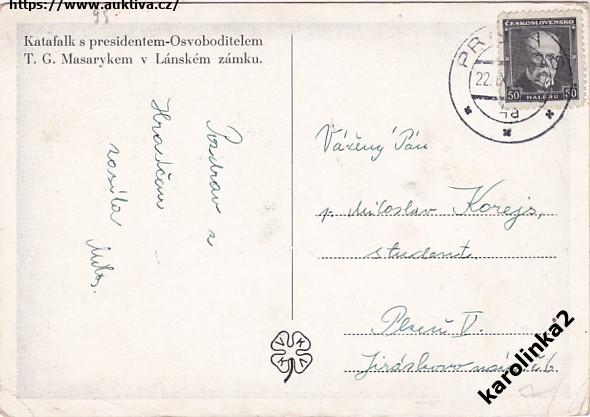 https://www.auktiva.cz/
Katafalk s presidentem-Osvoboditelem
T. G. Masarykem v Lánském zámku.
Pozdrav z
Hradčan
zasílá
Miloš.
ČESKOSLOVENSKO
50 HALÉŘŮ 50
PRAHA
22.
Vážený Pán
p. Miloslav Korejs,
student.
Plzeň V.
Jiráskovo nám. č. 6.
V K V K
karolinka2